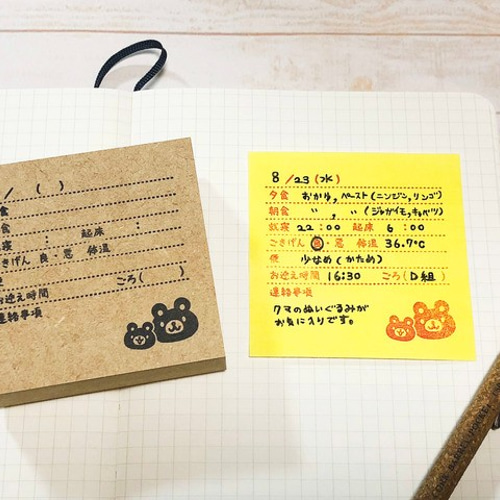 / ( )
食
食
寝 : 起床 :
ごきげん 良・悪 体温
便
お迎え時間 ごろ( )
連絡事項
8/23(水)
夕食 おかゆ,ペースト(ニンジン,リンゴ)
朝食 〃,〃(ジャガイモ,キャベツ)
就寝 22:00 起床 6:00
ごきげん 良・悪 体温 36.7℃
便 少なめ(かため)
お迎え時間 16:30 ごろ(D組)
連絡事項
クマのぬいぐるみが
お気に入りです。